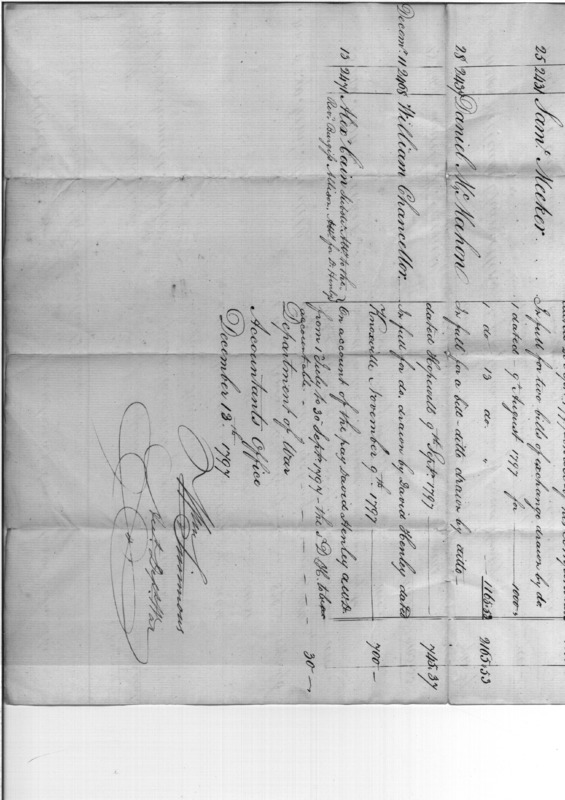 25 2431 Sam.l Meeker . . In full for two bills of exchange drawn by do
1 dated 9th August 1797 for 1000
1 do 13 do " 1165.53 2165.53
28 2434 Daniel McMahon In full for a bill ditto drawn by ditto
dated Hopewell 9th Sept. 1797 745.37
Decem.r 11 2468 William Chancellor. In full for do. drawn by David Henley dated
Knoxville November 9th 1797 700 -
13 2471 Alex.r Cain On account of the pay David Henley
Rev.d Burgiss Allison, from 1 July to 30 Sept. 1797 - the s.d D. H. to be
accountable - 30 -
Department of War
Accountants Office
December 13th 1797
Wm Simmons